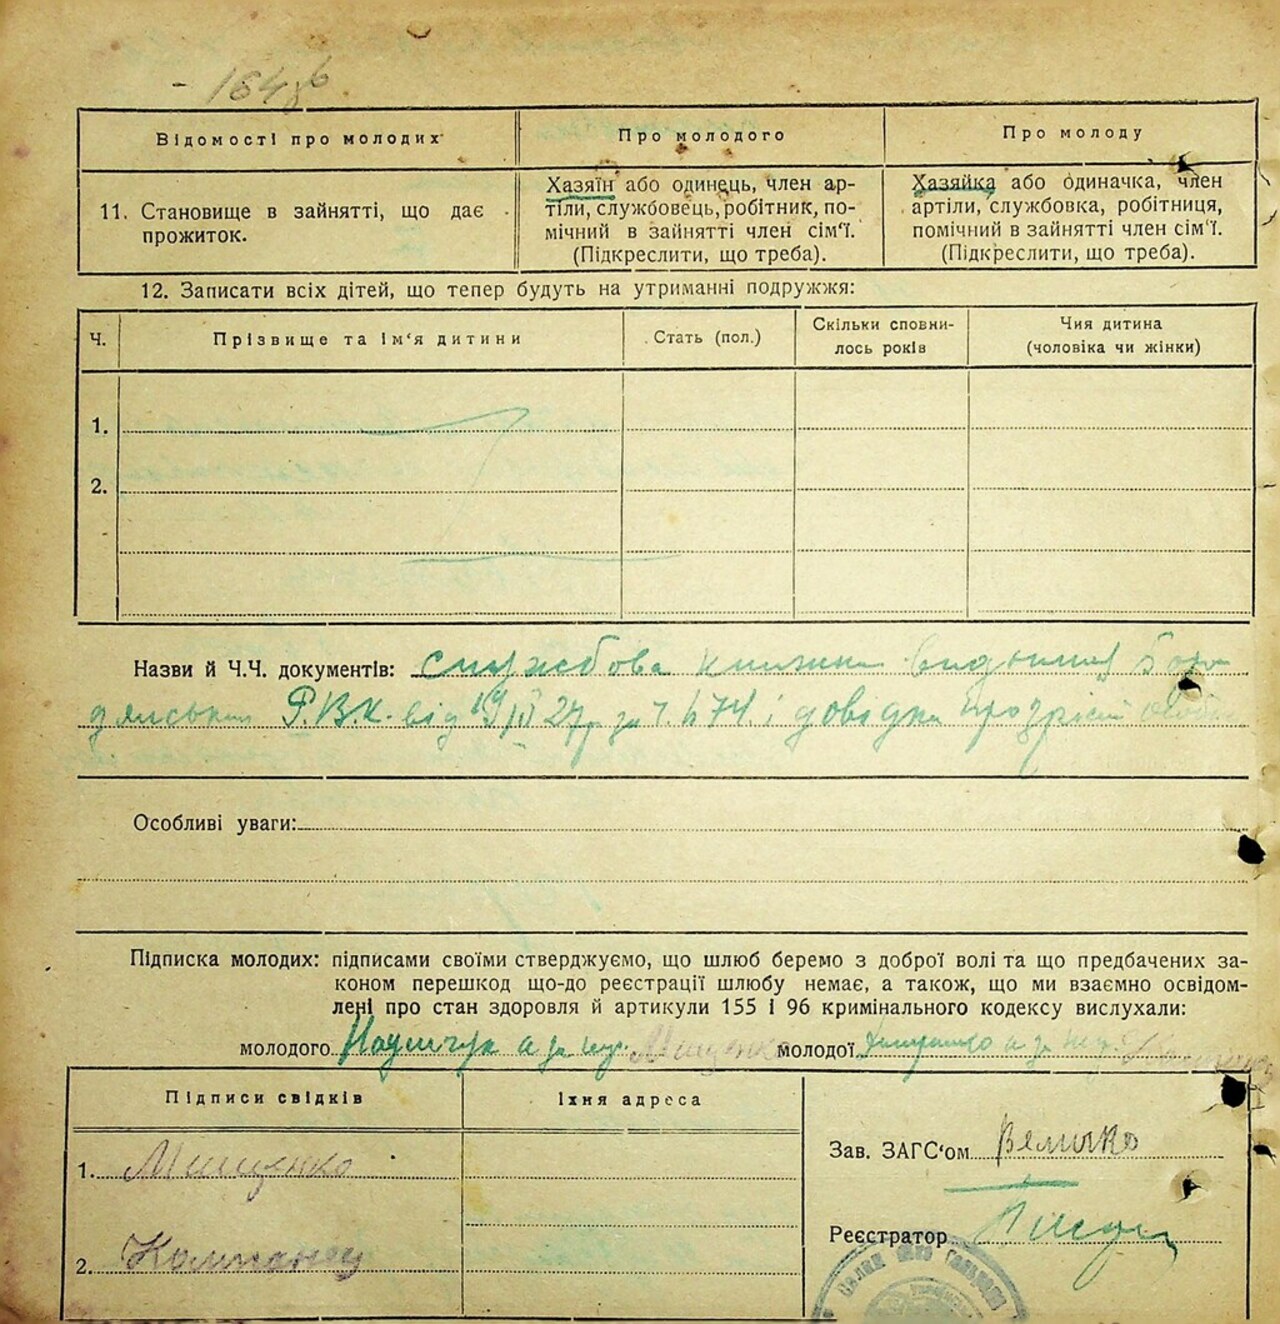 Відомості про молодих
Про молодого
Про молоду
11. Становище в зайнятті, що дає
прожиток.
Хазяїн або одинець, член ар-
тіли, службовець, робітник, по-
мічний в зайнятті член сім'ї.
(Підкреслити, що треба).
Хазяйка або одиначка, член
артіли, службовка, робітниця,
помічний в зайнятті член сім'ї.
(Підкреслити, що треба).
12. Записати всіх дітей, що тепер будуть на утриманні подружжя:
Ч.
Прізвище та ім'я дитини
Стать (пол.)
Скільки сповни-
лось років
Чия дитина
(чоловіка чи жінки)
1.
2.
Назви й Ч.Ч. документів: службова книжка
Р.В.К. від і довідка
Особливі уваги:
Підписка молодих: підписами своїми стверджуємо, що шлюб беремо з доброї волі та що предбачених за-
коном перешкод що-до реєстрації шлюбу немає, а також, що ми взаємно освідом-
лені про стан здоровля й артикули 155 і 96 кримінального кодексу вислухали:
молодого а за Мищенко молодої а за
Підписи свідків
Їхня адреса
1. Мищенко
2. Компанец
Зав. ЗАГС'ом Величко
Реєстратор